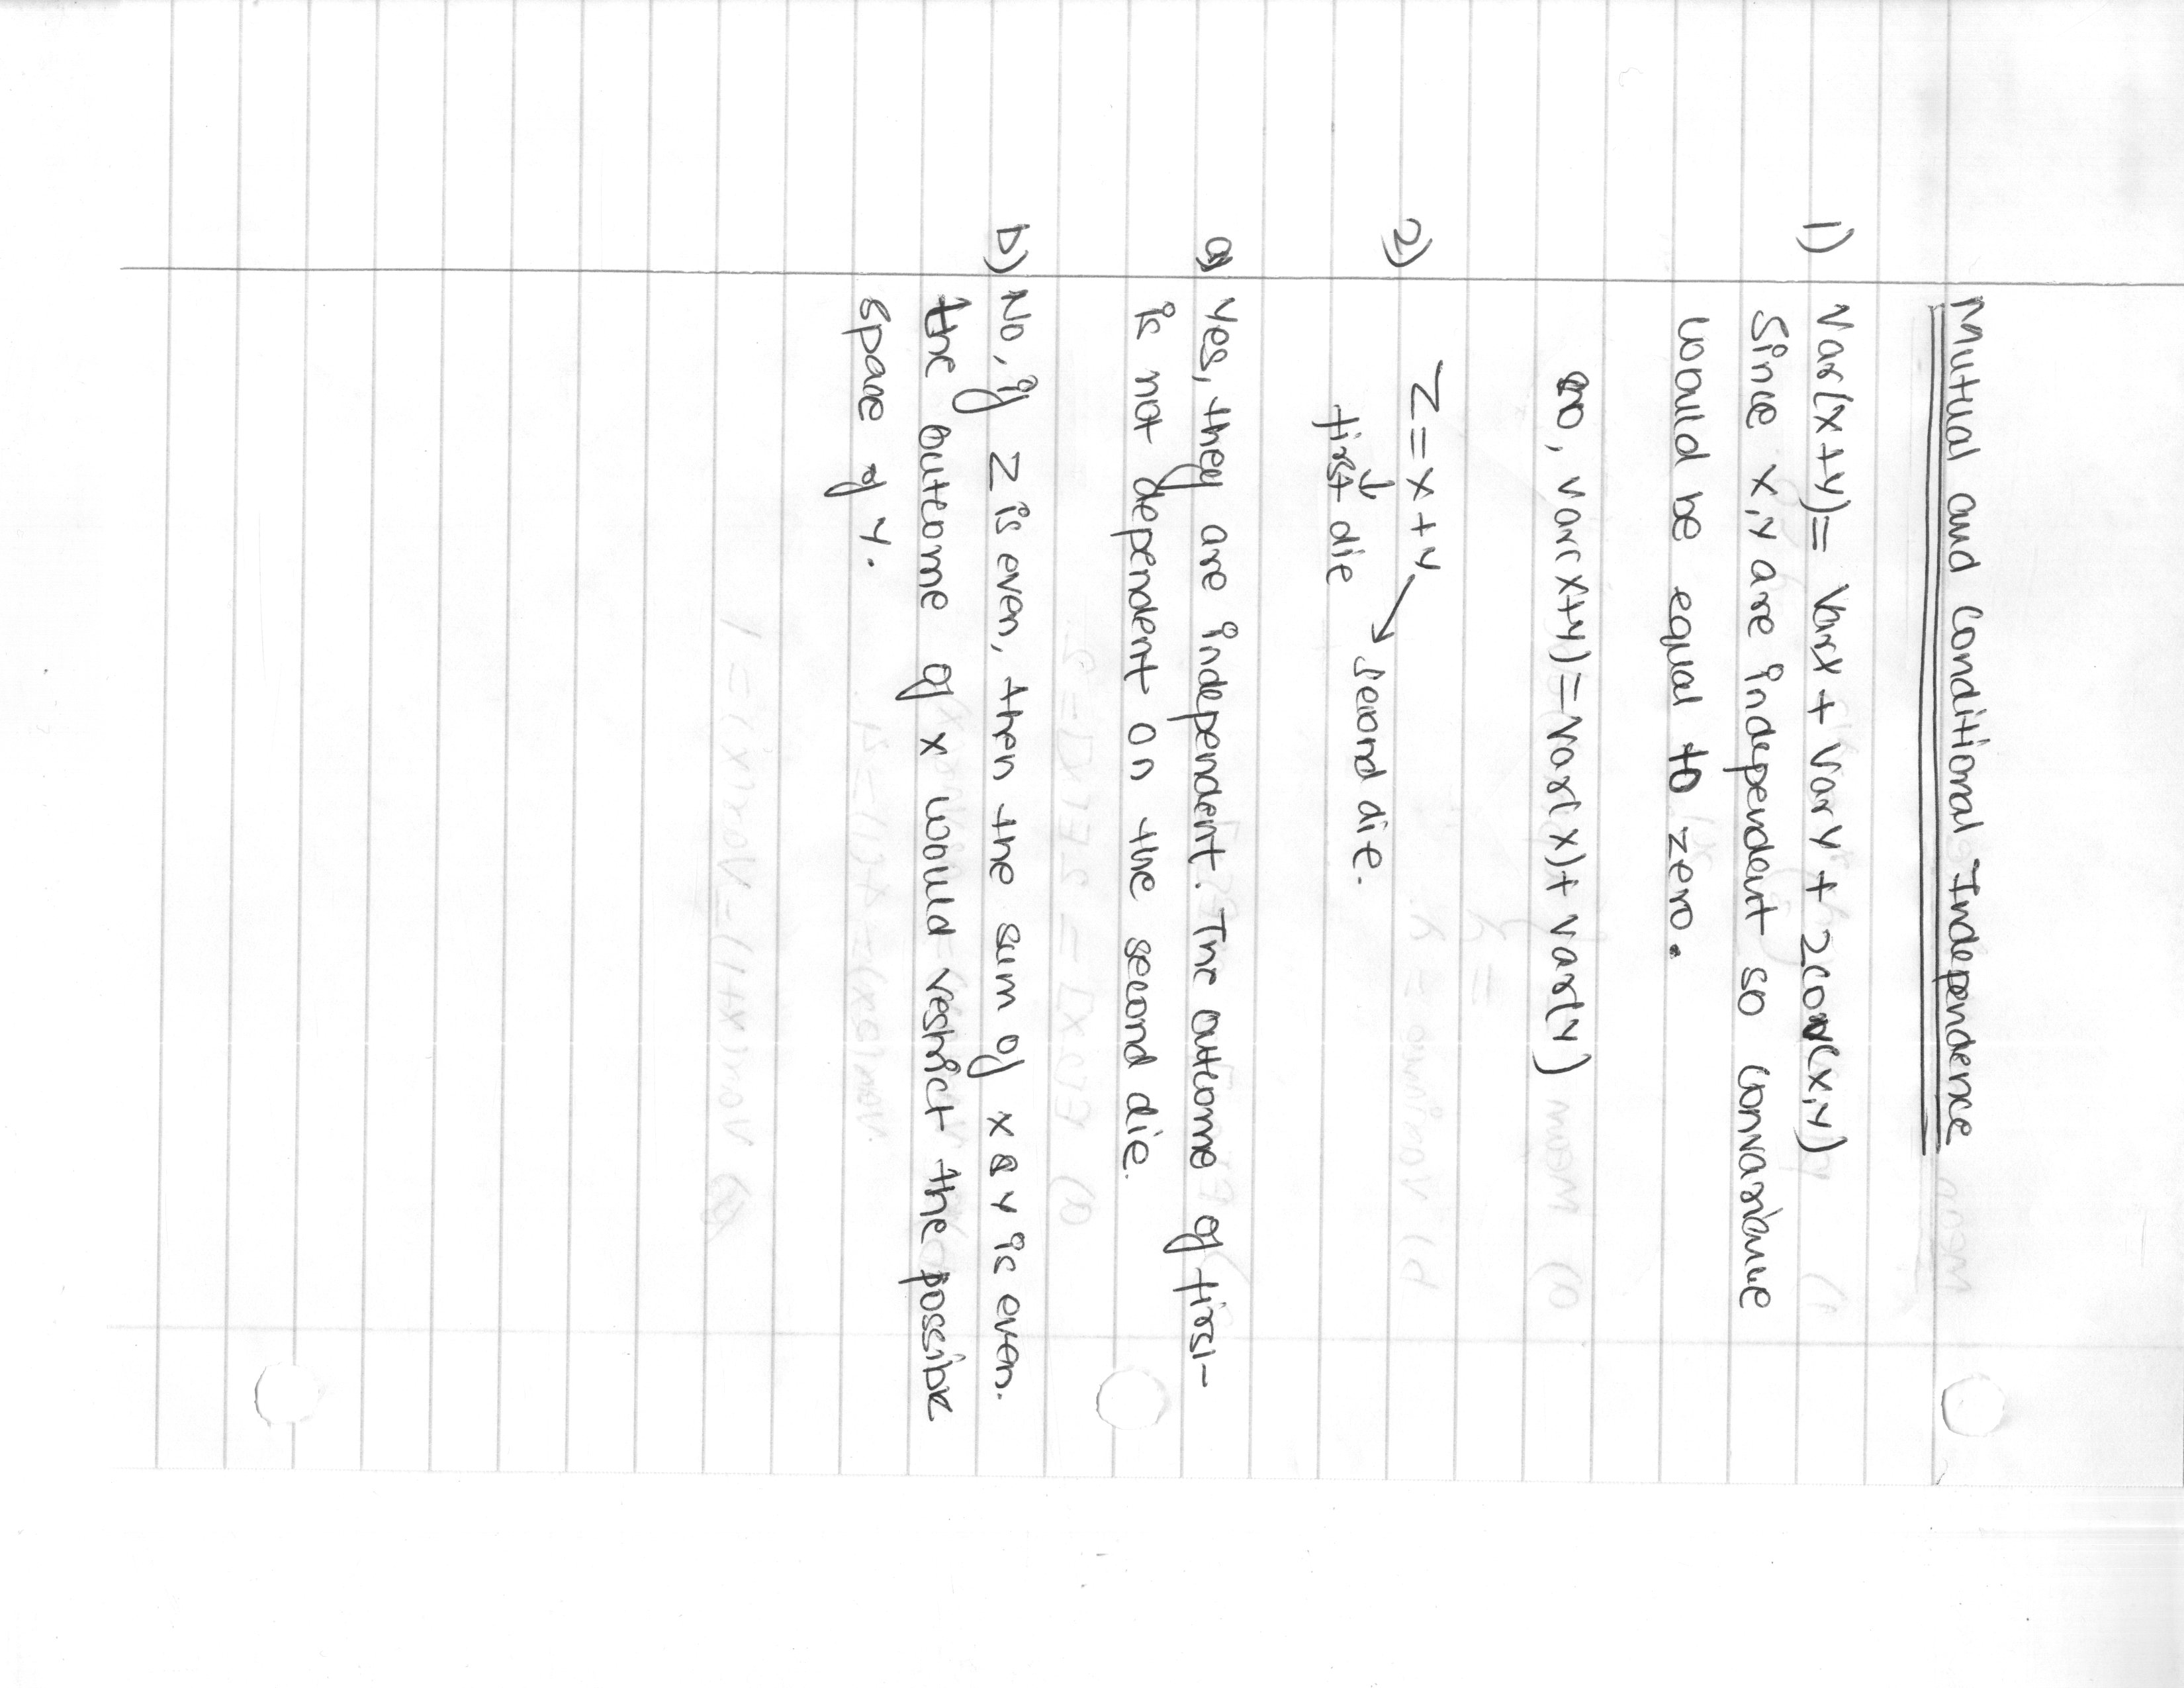 Mutual and Conditional Independence
1) Var(X+Y) = Var X + Var Y + 2 Cov(X,Y)
Since X,Y are independent so convariance
would be equal to zero.
so, Var(X+Y) = Var(X) + Var(Y)
2) Z = X + Y → second die.
↓
first die
a) Yes, they are independent. The outcome of first
is not dependent on the second die.
b) No, if Z is even, then the sum of X & Y is even.
the outcome of X would restrict the possible
space of Y.